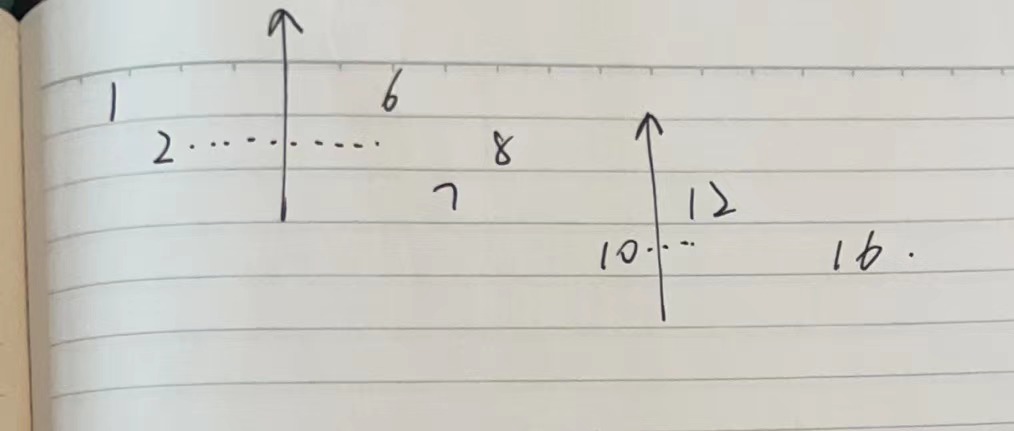 1 6
2 ........... 8
7 12
10 .... 16.